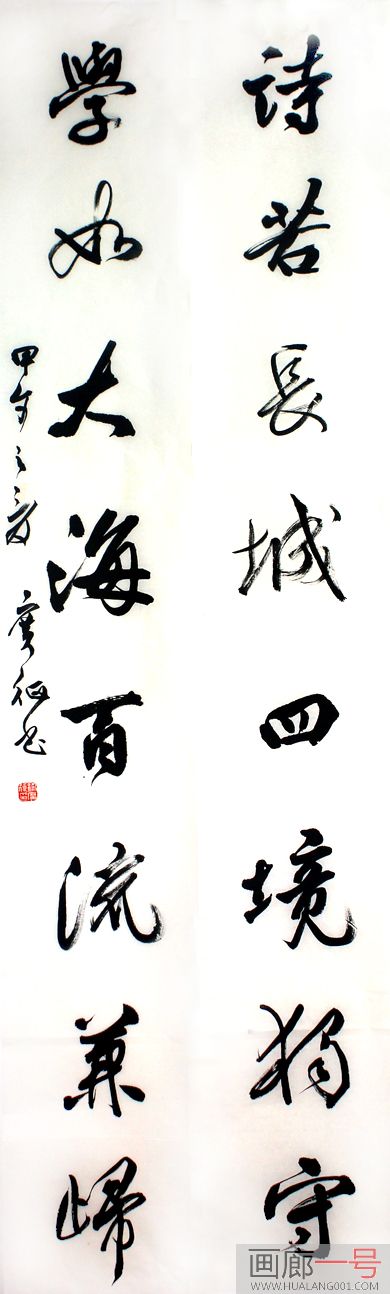 詩若長城四境獨守
學如大海百流兼歸
甲午之夏
書
画廊一号
WWW.HUALANG001.COM